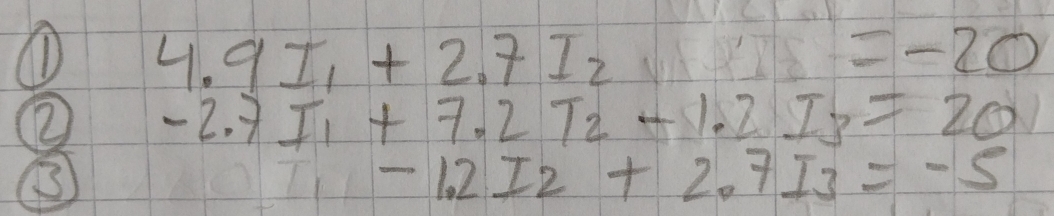 ① 4.9 I₁ + 2.7 I₂ = -20
② -2.7 I₁ + 7.2 I₂ - 1.2 I₃ = 20
③ -1.2 I₂ + 2.7 I₃ = -5